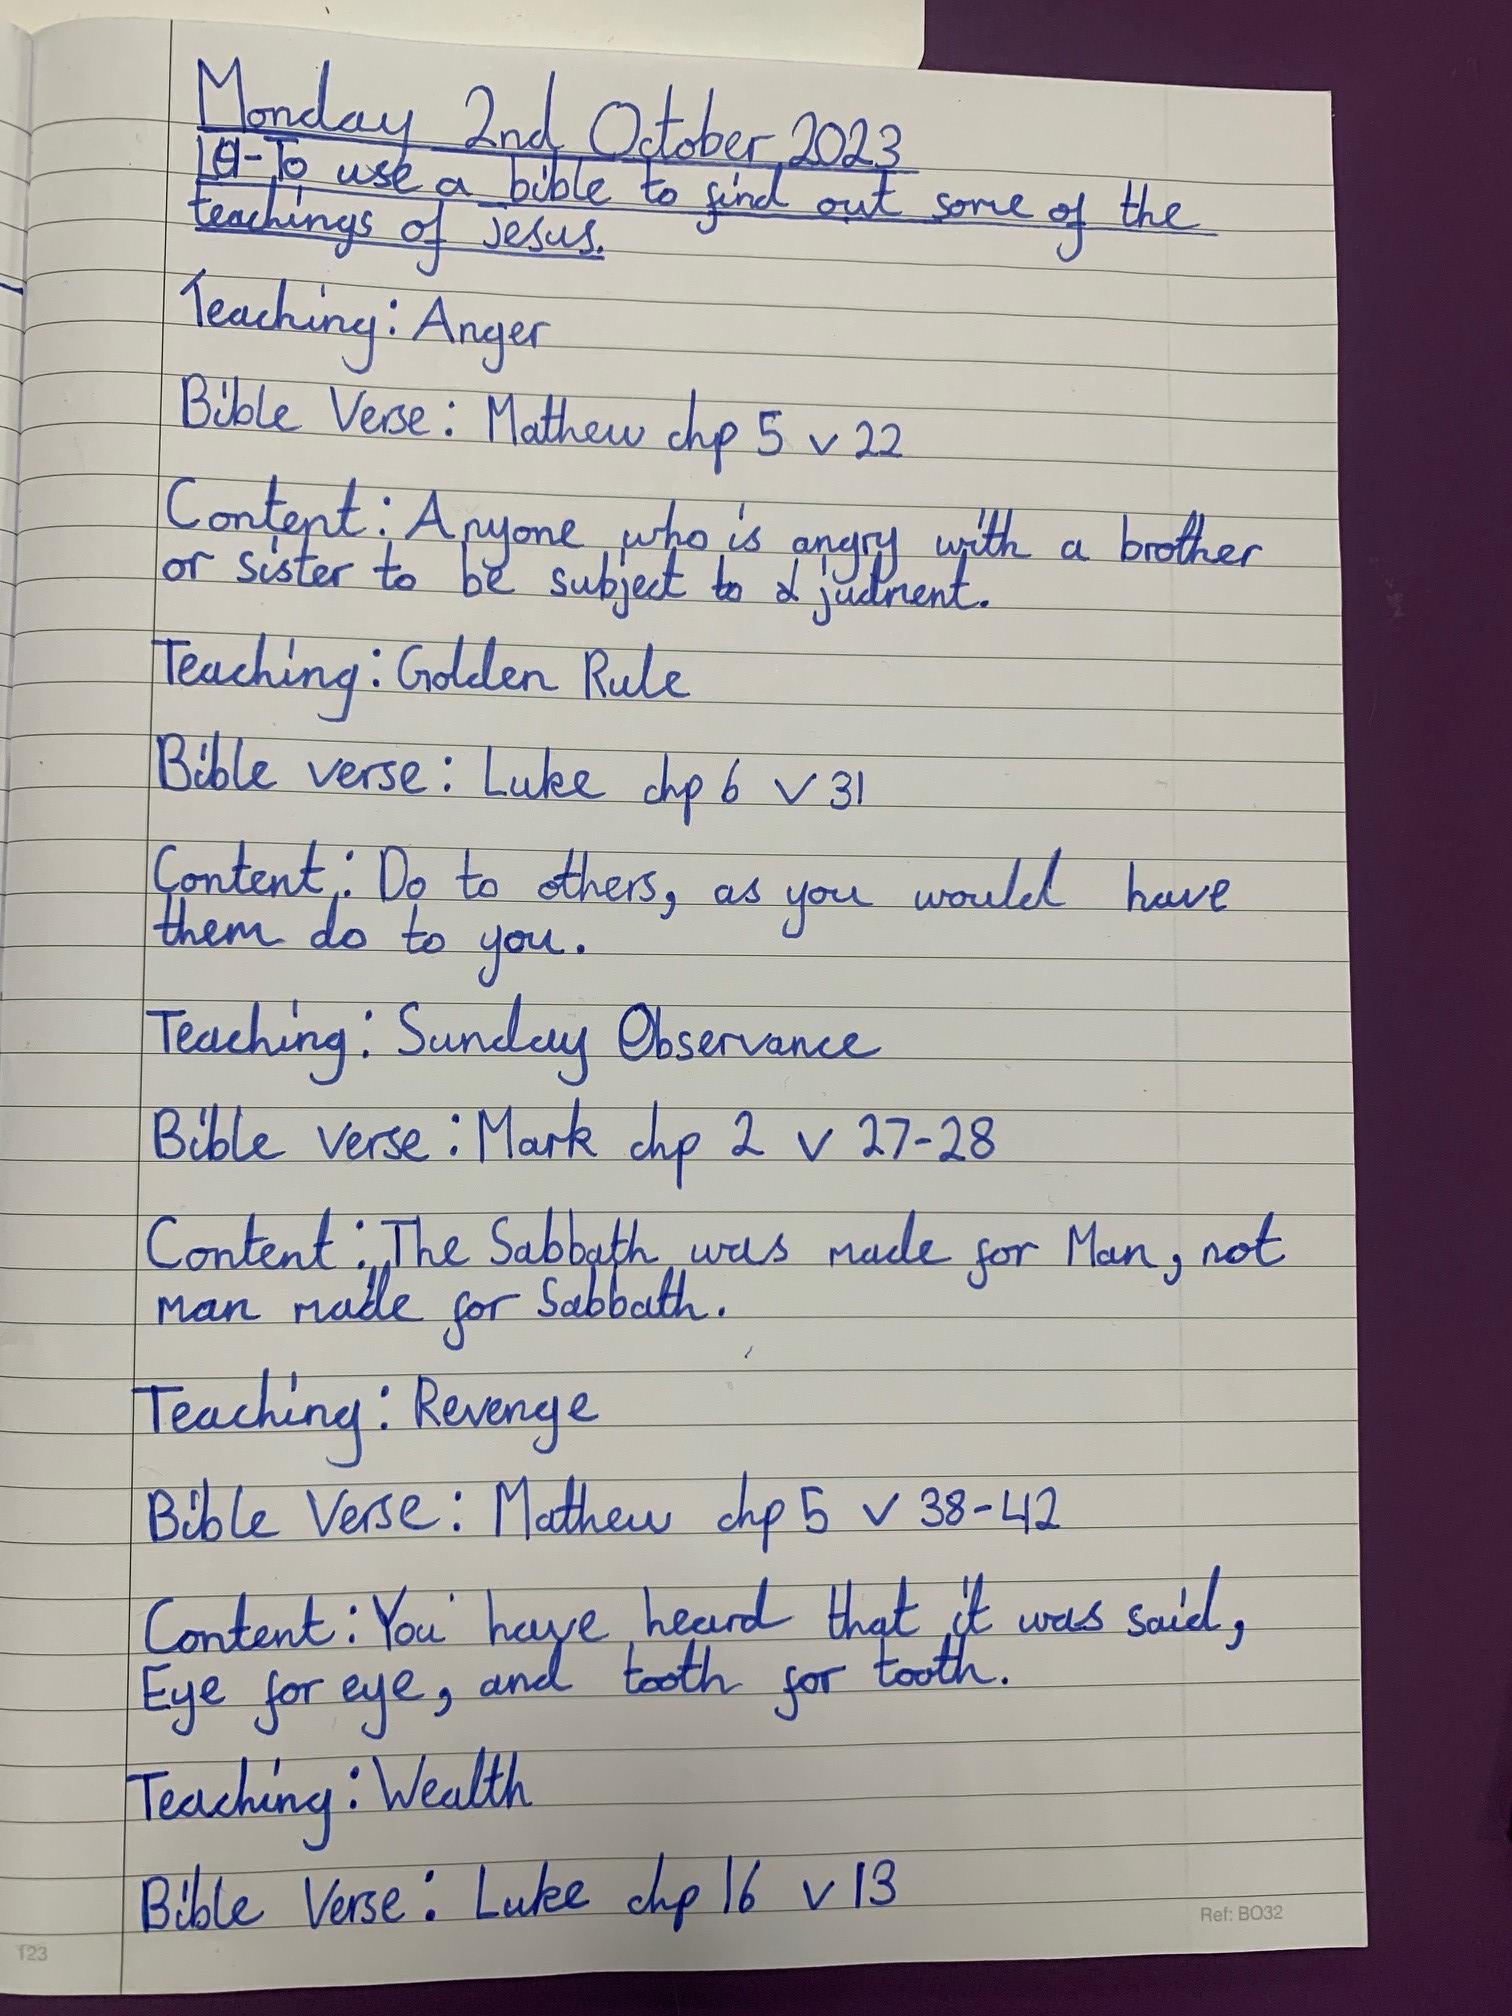 Monday 2nd October 2023
LO-To use a bible to find out some of the
teachings of Jesus.
Teaching: Anger
Bible Verse: Mathew chp 5 v 22
Content: Anyone who is angry with a brother
or sister to be subject to a judment.
Teaching: Golden Rule
Bible verse: Luke chp 6 v 31
Content: Do to others, as you would have
them do to you.
Teaching: Sunday Observance
Bible verse: Mark chp 2 v 27-28
Content: The Sabbath was made for Man, not
man made for Sabbath.
Teaching: Revenge
Bible Verse: Mathew chp 5 v 38-42
Content: You have heard that it was said,
Eye for eye, and tooth for tooth.
Teaching: Wealth
Bible Verse: Luke chp 16 v 13
Ref: BO32
123